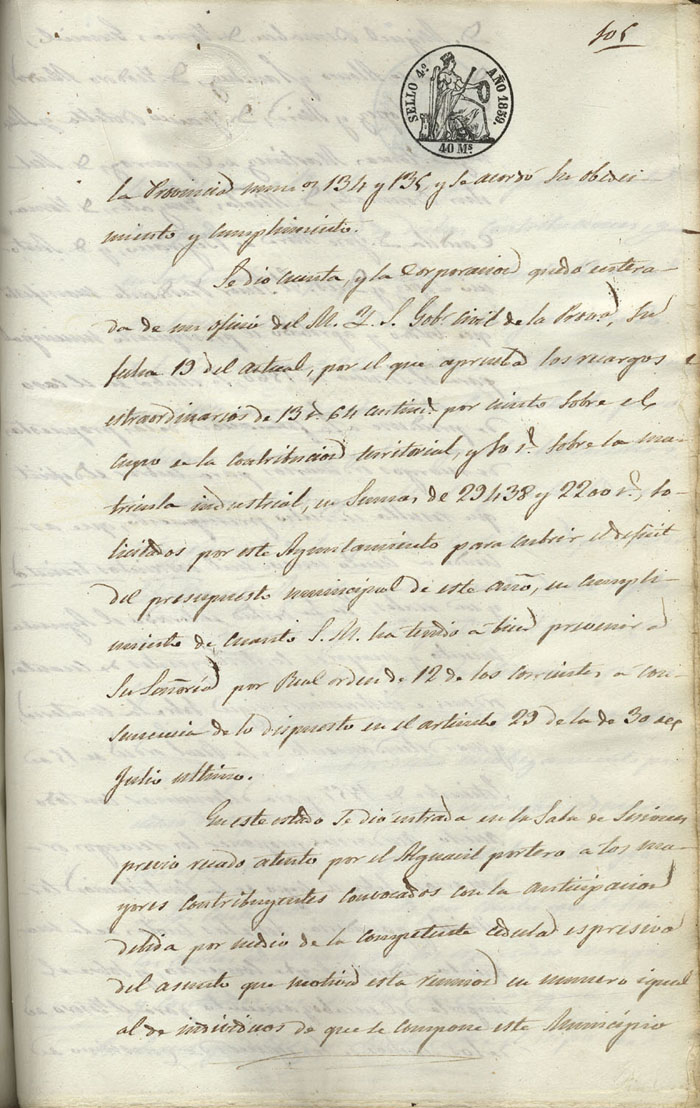 105
SELLO 4º AÑO 1859.
40 Ms.
la Provincia numos 134 y 135, y se acordó su obedeci-
miento y cumplimiento.
Se dio cuenta, y la Corporacion quedó entera-
da de un oficio del M. Y. S. Gobr. Civil de la Prova, su
fecha 19 del actual, por el que aprueba los recargos
estraordinarios de 13 rs. 64 centims. por ciento sobre el
cupo en la contribucion territorial, y 10 rs. sobre la ma-
tricula industrial, en Suma, de 29438 y 2200 rs., so-
licitados por este Ayuntamiento para cubrir el deficit
del presupuesto municipal de este año, en cumpli-
miento de cuanto S. M. ha tenido á bien prevenir á
Su Señoría por Real orden de 12 de los corrientes, a con-
secuencia de lo dispuesto en el articulo 29 de la de 30 de
Julio ultimo.
En este estado se dio entrada en la Sala de Sesiones
previo recado atento por el Alguacil portero a los ma-
yores contribuyentes convocados con la anticipacion
debida por medio de la competente cedula espresiva
del asunto que motiva esta reunion en numero igual
al de individuos de que se compone este Municipio